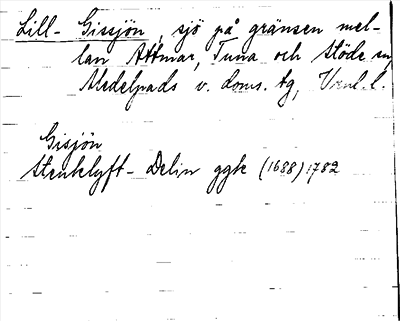 Lill- Gissjön, sjö på gränsen mel-
lan Attmar, Tuna och Stöde sn,
Medelpads v. doms. tg, Vnl. l.
Gisjön
Stenklyft- Delin ggk (1688) 1782